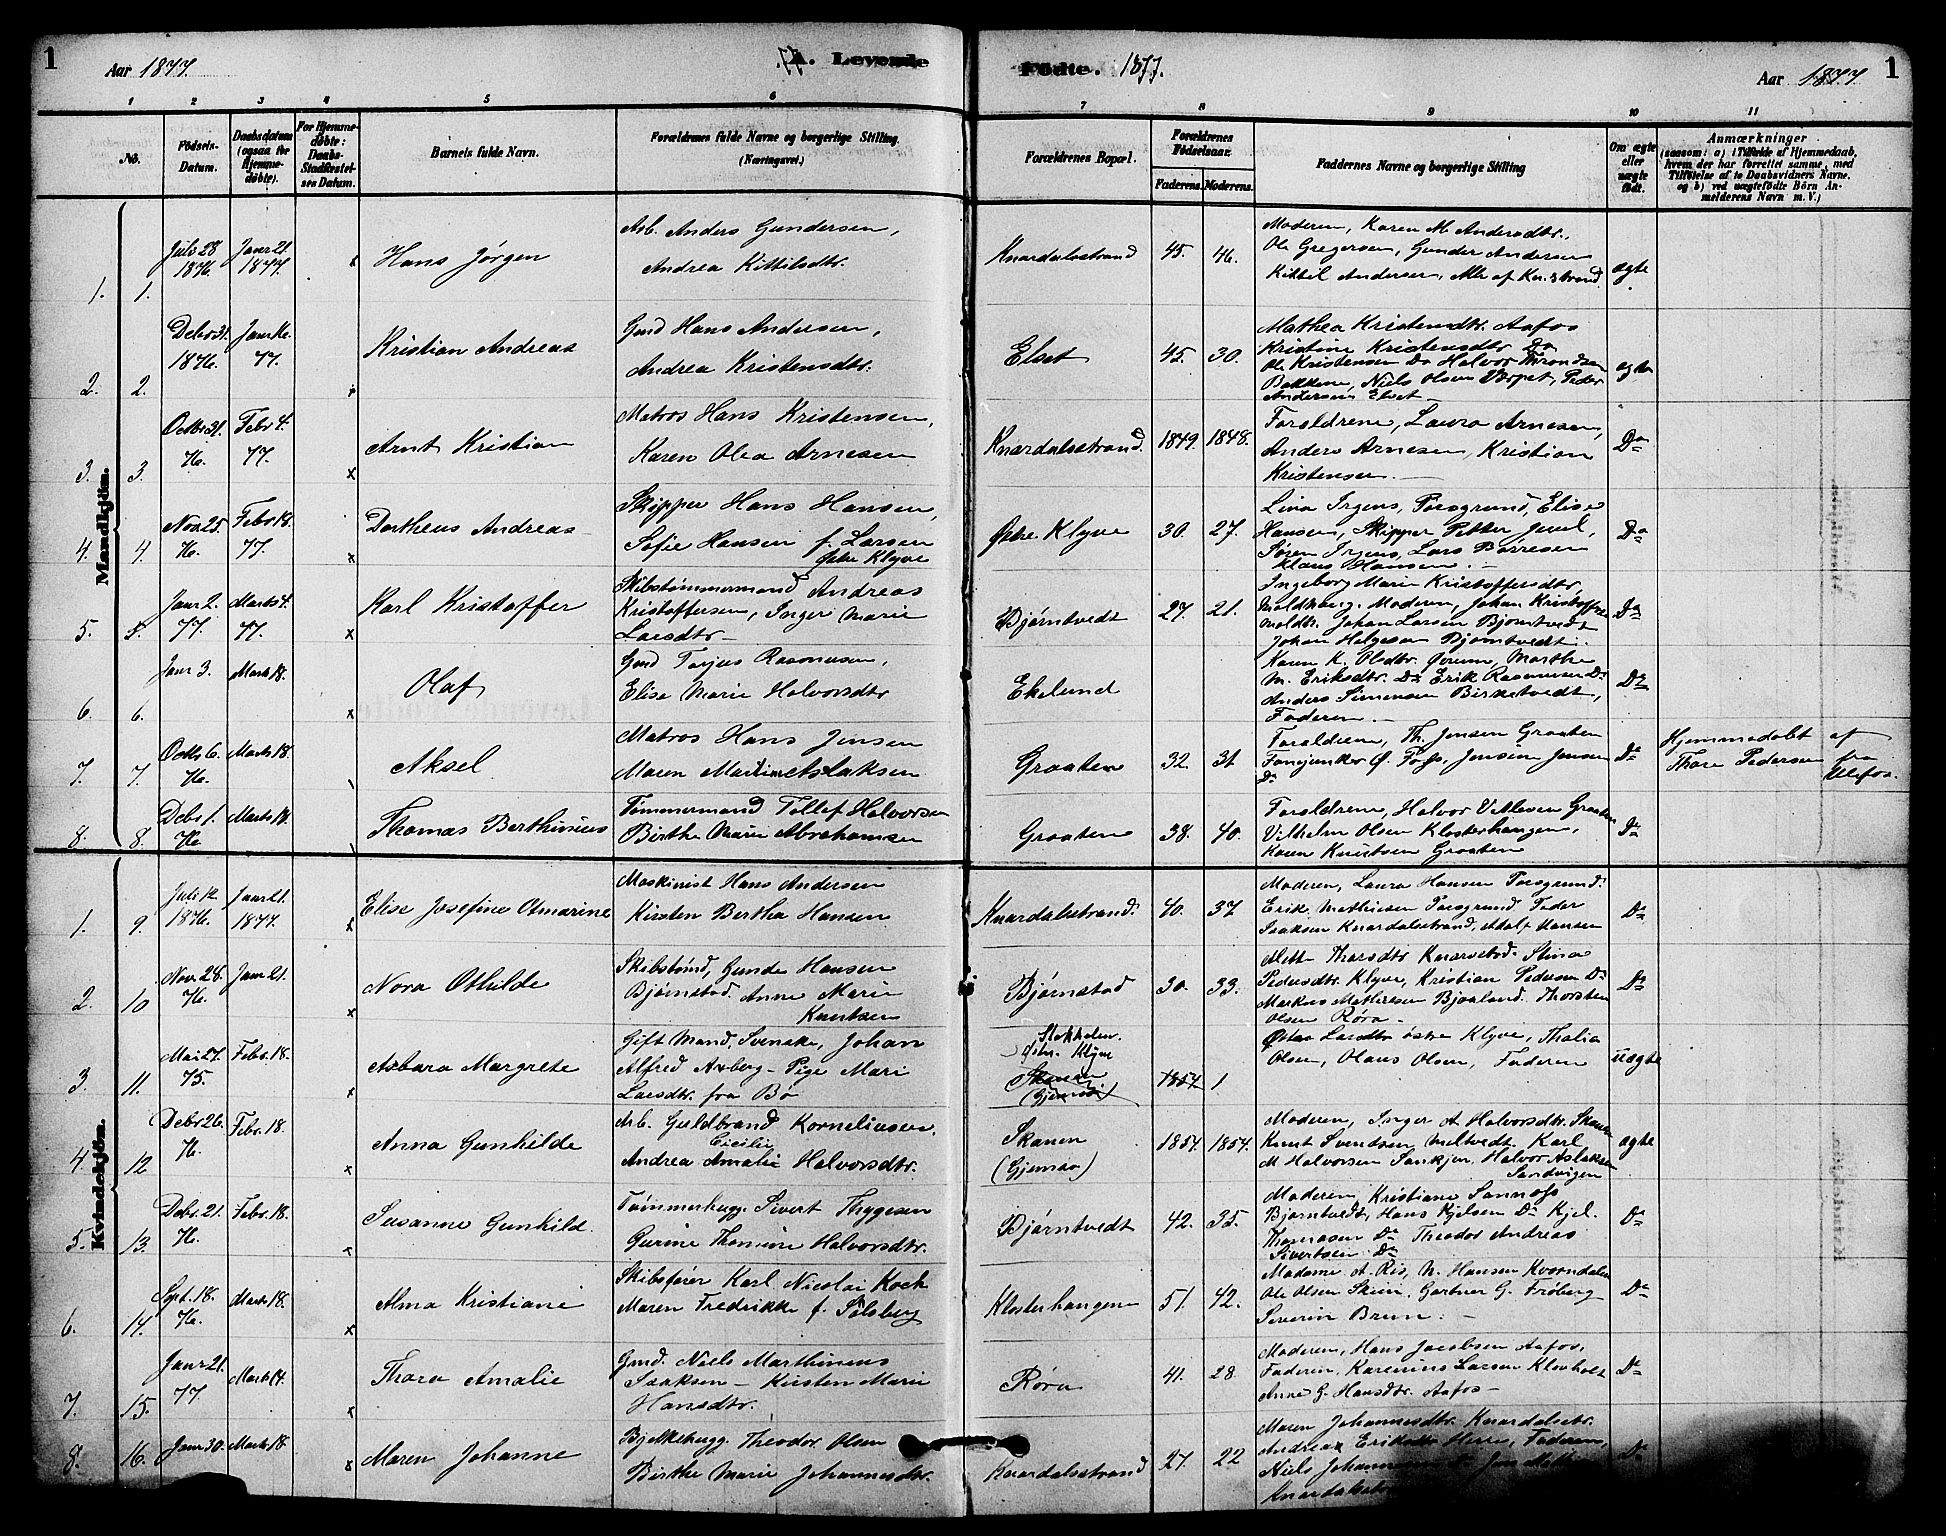 1
Aar 1877.
A. Levende
Fødte. 1877.
Aar 1877
1
1 2 3 4 5 6 7 8 9 10 11
No.
Fødsels-Datum.
Daabsdatum (ogsaa for Hjemme-døbte).
For Hjemme-døbte: Daabs-Stadfæstel-sen Datum.
Barnets fulde Navn.
Forældrenes fulde Navne og borgerlige Stilling.
(Næringsvei.)
Forældrenes Bopæl.
Forældrenes Fødselsaar.
Faderens. Moderens.
Faddernes Navne og borgerlige Stilling
Om ægte eller uægte født.
Anmærkninger
(saasom: a) i Tilfælde af Hjemmedaab,
hvem der har forrettet samme, med
Tilføielse af to Daabsvidners Navne,
og b) ved uægtefødte Børn An-
melderens Navn m. V.)
Mandkjøn.
1. 1. Juls 28 1876. Janr 21. 1877. x Hans Jørgen
Arb. Anders Gundersen,
Andrea Kittilsdtr.
Knardalsstrand 45. 46.
Moderen, Karen M. Andersdtr.
Ole Gregersen, Gunder Andersen
Kittil Andersen, Alle af Kn.strand
ægte
2. 2. Debr 31. 1876. Janr 77. Kristian Andreas
Gmd Hans Andersen,
Andrea Kristensdtr.
Elset 45. 30.
Mathea Kristensdtr. Aafos
Kristine Kristensdtr. Do
Ole Kristensen Do Halvor Throndsen
Bakkene, Niels Olsen Verpet, Peder
Andersen Elset
ægte
3. 3. Octbr 31. 76. Febr 4. 77. x Arnt Kristian
Matros Hans Kristensen,
Karen Olea Arnesen
Knardalsstrand. 1849. 1848.
Forældrene, Laura Arnesen,
Anders Arnesen, Kristian
Kristensen.
Do
4. 4. Novr 25. 76. Febr 18. 77. x Dortheus Andreas
Skipper Hans Hansen,
Sofie Hansen f. Larsen
Østre Klyve
Østre Klyve 30. 27.
Lina Irgens, Porsgrund, Elise
Hansen, Skipper Petter Juul,
Søren Irgens, Lars Borresen
Klaus Hansen.
Do
5. 5. Janr 2. 77. Marts 4. 77. x Karl Kristoffer
Skibstømmermand Andreas
Kristoffersen, Inger Marie
Larsdtr
Bjørntvedt 27. 21.
Ingeborg Marie Kristoffersdtr.
Moderen, Johan
Johan Larsen Bjørntvedt
Johan Helgesen Bjørntvedt.
Do
6. 6. Janr 3. Marts 18. x Olaf
Gmd Torjus Rasmusen,
Elise Marie Halvorsdtr
Ekelund
Karen K. Olsdtr. Øverum, Marthe
M. Eriksdtr. Do Erik Rasmusen Do
Anders Simonsen Birketvedt,
Faderen.
Do
7. 7. Octbr 6. 76. Marts 18. Aksel
Matros Hans Jensen
Maren Martine Aslaksen
Graaten 32. 31
Forældrene, Th. Jensen Graaten
Ø. Foss, Jensine Jensen
Do
Do
Hjemmedøbt af
Thore Pedersen fra
Ulefos.
8. 8. Debr 1. 76. Marts 18. Thomas Berthinius
Tømmermand Tollef Halvorsen
Birthe Marie Abrahamsen
Graaten 38. 40.
Forældrene, Halvor Vetlesen Graaten
Vilhelm Olsen Klosterhaugen,
Karen Knutsen Graaten
Do
Kvindekjøn.
1. 9 Juli 12 1876. Janr 21. 1877. x Elise Josefine Otmarine
Maskinist Hans Andersen
Kirsten Bertha Hansen
Knardalsstrand. 40. 37
Moderen, Laura Hansen Porsgrund.
Erik Mathiesen Porsgrund Peder
Isaksen Knardalsstrand, Adolf Hansen
Do
2. 10 Novr 28. 76. Janr 21. x Nora Othilde
Skibstømd, Gunde Hansen
Bjørnstad. Anne Marie
Knutsen
Bjørnstad 30. 33.
Mette Thorsdtr Stina
Pedersdtr. Klyve, Kristian Pedersen Do
Markus Mathiesen Bjoland. Thorsten
Olsen Røra
Do
3 11. Mai 27. 75. Febr. 18. x Asbora Margrete
Gift Mand, Svenske, Johan
Alfred Axberg - Pige Mari
Larsdtr. fra Bø
Stokholm.
Østre Klyve
Skanen
(Gjemsø)
1854. 1
Larsdtr østre Klyve, Thalia
Olsen, Olaus Olsen, Faderen
uægte
4 12 Debr 26. 76. Febr. 18. x Anna Gunhilde
Arb. Guldbrand Korneliusen,
Cicilie
Andrea Amalie Halvorsdtr.
Skanen
(Gjemsø)
1854. 1854.
Moderen, Inger A. Halvorsdtr. Skanen
Knut Svendsen, Meltvedt. Karl
M. Halvorsen Halvor Aslaksen
Sandvigen
ægte
5. 13. Debr. 21. 76. Febr. 18. Susanne Gunhild.
Tømmerhugg. Sivert Thygesen
Gurine Thomine Halvorsdtr.
Bjørntvedt 42. 35.
Moderen, Kristiane
Bjørntvedt, Hans Kjelsen Do Kjel.
Thomasen Do Theodor Andreas
Sivertsen. Do
Do
6. 14. Sept. 18. 76. Marts 18. x Alma Kristiane
Skibsfører Karl Nicolai Koch
Maren Fredrikke f. Solsberg
Klosterhaugen 51. 42.
Madame A. Ris, N. Hansen
Ole Olsen Skien, Gartner G. Frøberg
Severin Brun.
Do
7. 15. Janr 21. 77. Marts 14. x Thora Amalie
Gmd. Niels Marthinius
Isaksen - Kirsten Marie
Hansdtr.
Røra 41. 28
Moderen, Hans Jacobsen Aafos,
Faderen, Karenius Larsen Klovholt
Anne G. Hansdtr. Aafos
Do
8. 16. Janr 30. Marts 18. x Maren Johanne
Bjelkehugg. Theodor Olsen
Birthe Marie Johannesdtr.
Knardalsstrand 27. 22
Maren Johannesdtr. Knardalsstr.
Andreas Herre, Faderen,
Niels
Do